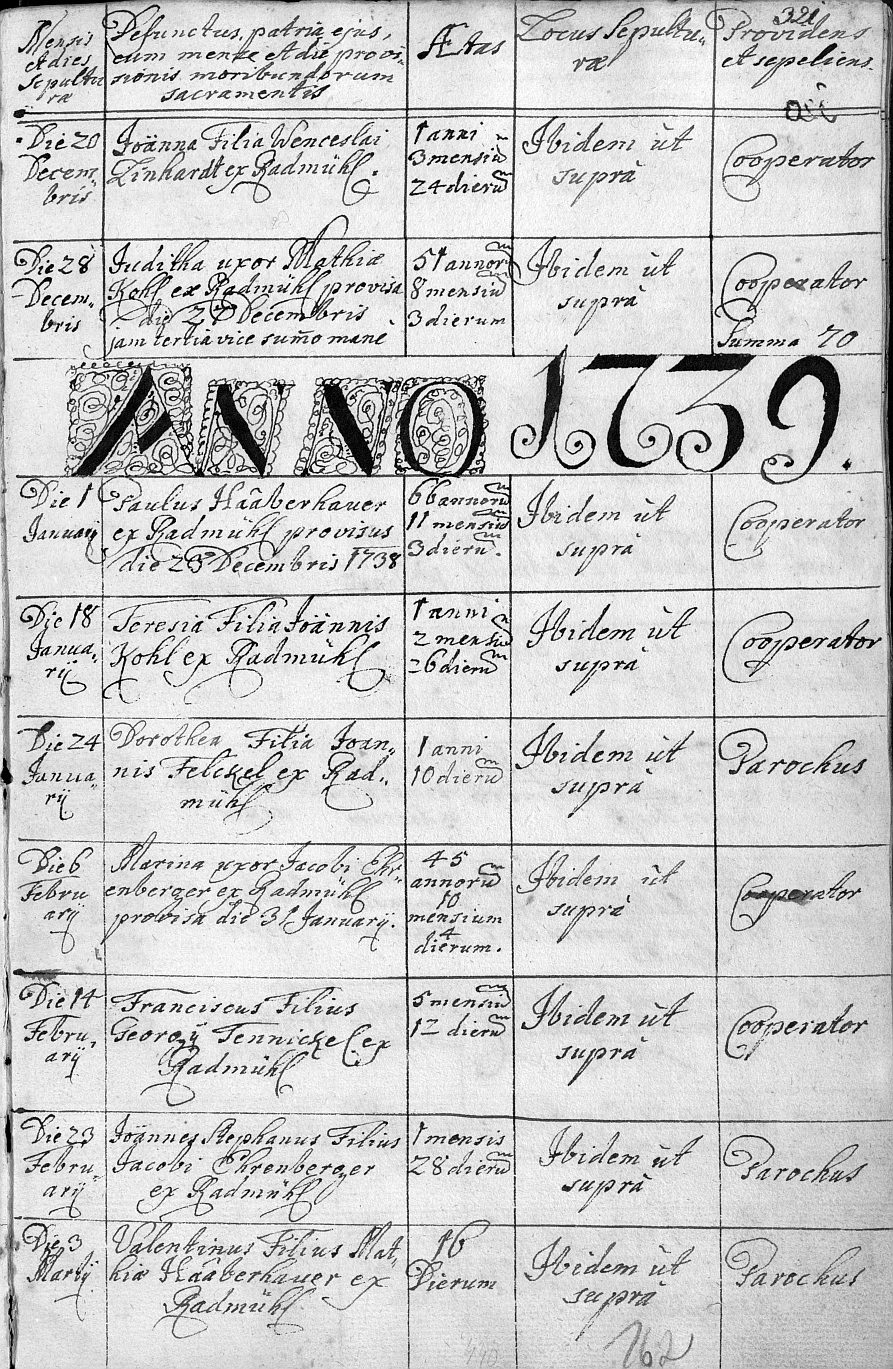 321
Mensis
et dies
sepultu
ræ
Defunctus, patria ejus,
cum mense et die provi-
sionis moribundorum
sacramentis
Ætas
Locus Sepultu-
ræ
Providens
et sepeliens.
Die 20
Decem
bris
Joänna Filia Wenceslai
Linhardt ex Radmühl.
1 anni
3 mensiu
24 dieru
Ibidem ùt
suprà
Cooperator
Die 28
Decem-
bris
Juditha uxor Mathiæ
Kohl ex Radmühl provisa
die 27 Decembris
jam tertia vice sumo manè
51 annoru
8 mensiu
3 dierum
Ibidem ùt
suprà
Cooperator
Summa 70
ANNO 1739.
Die 1
Januarij
Paulus Hââberhauer
ex Radmühl provisus
die 28 Decembris 1738
66 annoru
11 mensiu
3 dieru.
Ibidem ùt
suprà
Cooperator
Die 18
Janua-
rij
Teresia Filia Joännis
Kohl ex Radmühl
1 anni
2 mensiu
26 dieru
Ibidem ùt
suprà
Cooperator
Die 24
Janua-
rij
Dorothea Filia Joan-
nis Felckel ex Rad-
mühl
1 anni
10 dieru
Ibidem ùt
suprà
Parochus
Die 6
Febru
arij
Marina uxor Jacobi Ehr-
enberger ex Radmühl
provisa die 31 Januarij.
45
annoru
10
mensium
4
dierum.
Ibidem ùt
suprà
Cooperator
Die 14
Febru-
arij
Franciscus Filius
Georgij Jennickel ex
Radmühl
5 mensiu
12 dieru
Ibidem ùt
suprà
Cooperator
Die 23
Febru-
arij
Joännes Stephanus Filius
Jacobi Ehrenberger
ex Radmühl
1 mensis
28 dieru
Ibidem ùt
suprà
Parochus
Die 3
Martij
Valentinus Filius Mat-
hiæ Hââberhauer ex
Radmühl
16
Dierum
Ibidem ùt
suprà
Parochus
162